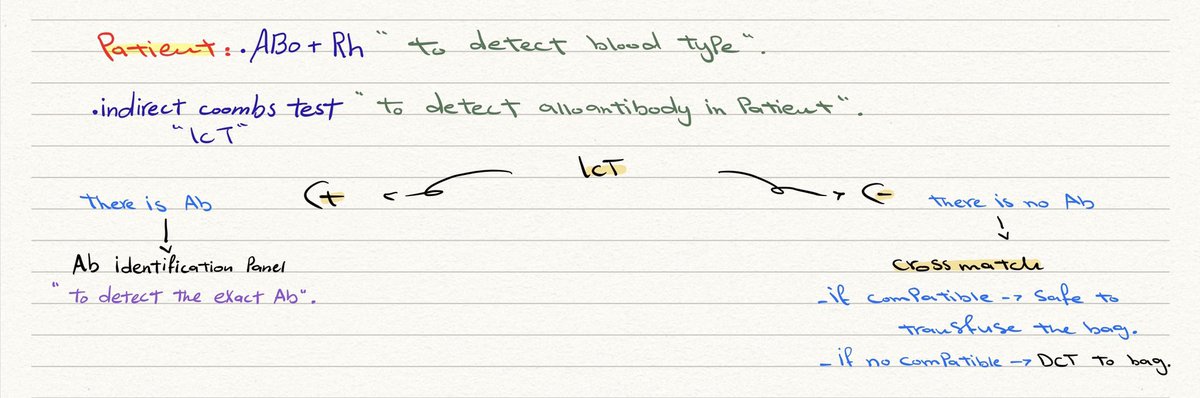 Patient: . ABO + Rh "to detect blood type".
. indirect coombs test "to detect alloantibody in Patient".
"IcT"
IcT
(+
(-
there is Ab
there is no Ab
Ab identification Panel
"to detect the exact Ab".
cross match
- if comPatible -> Safe to
transfuse the bag.
- if no comPatible -> DCT to bag.